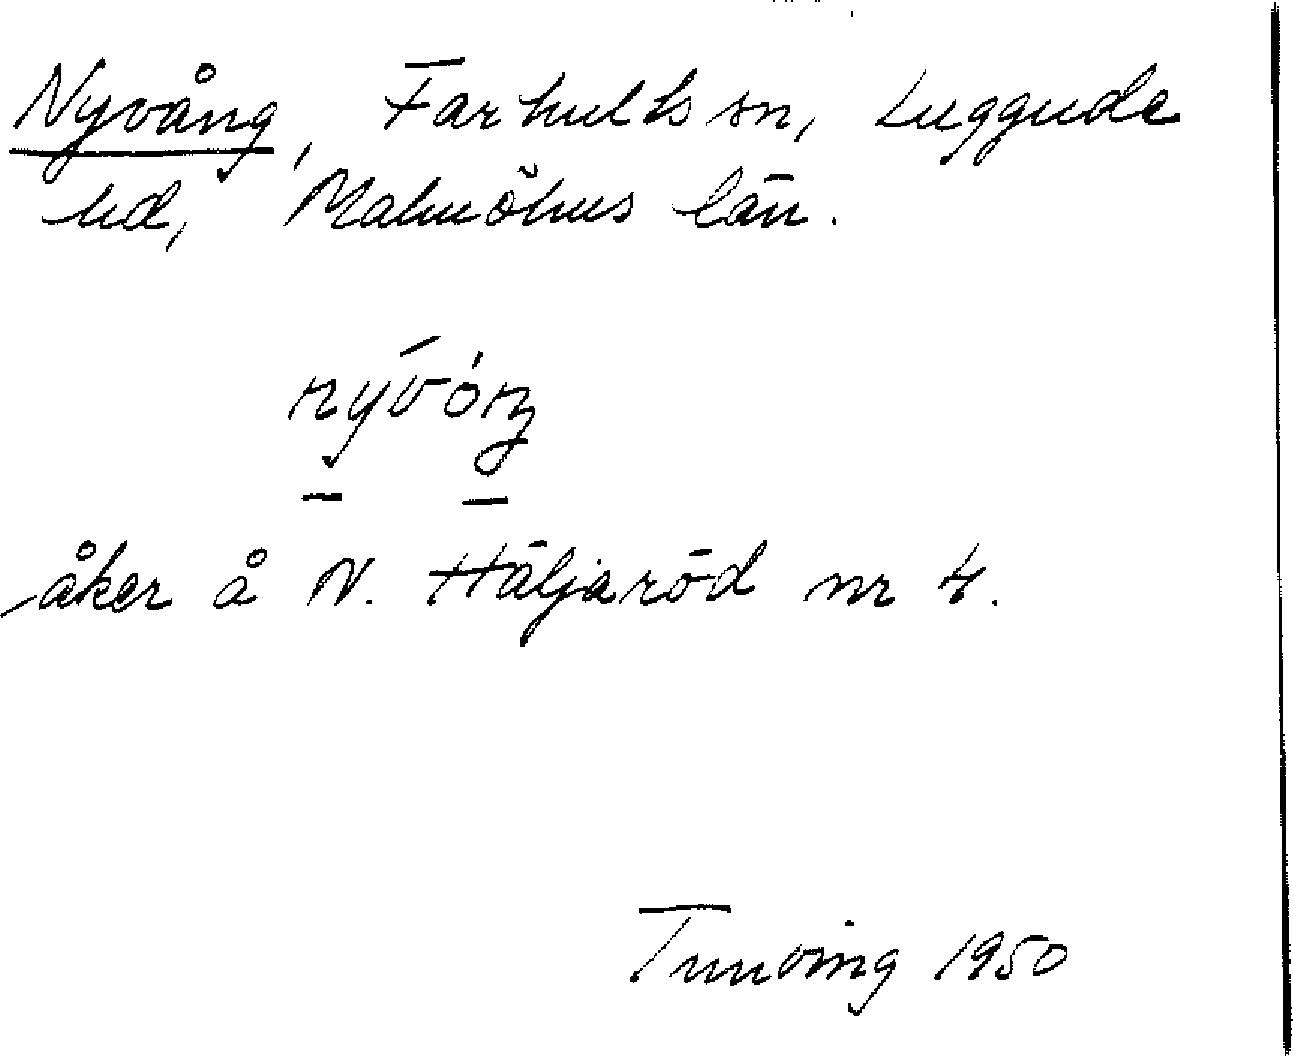 Nyvång, Farhults sn, Luggude
hd, Malmöhus län.
nývóŋ
åker å N. Häljaröd nr 4.
Tunving 1950